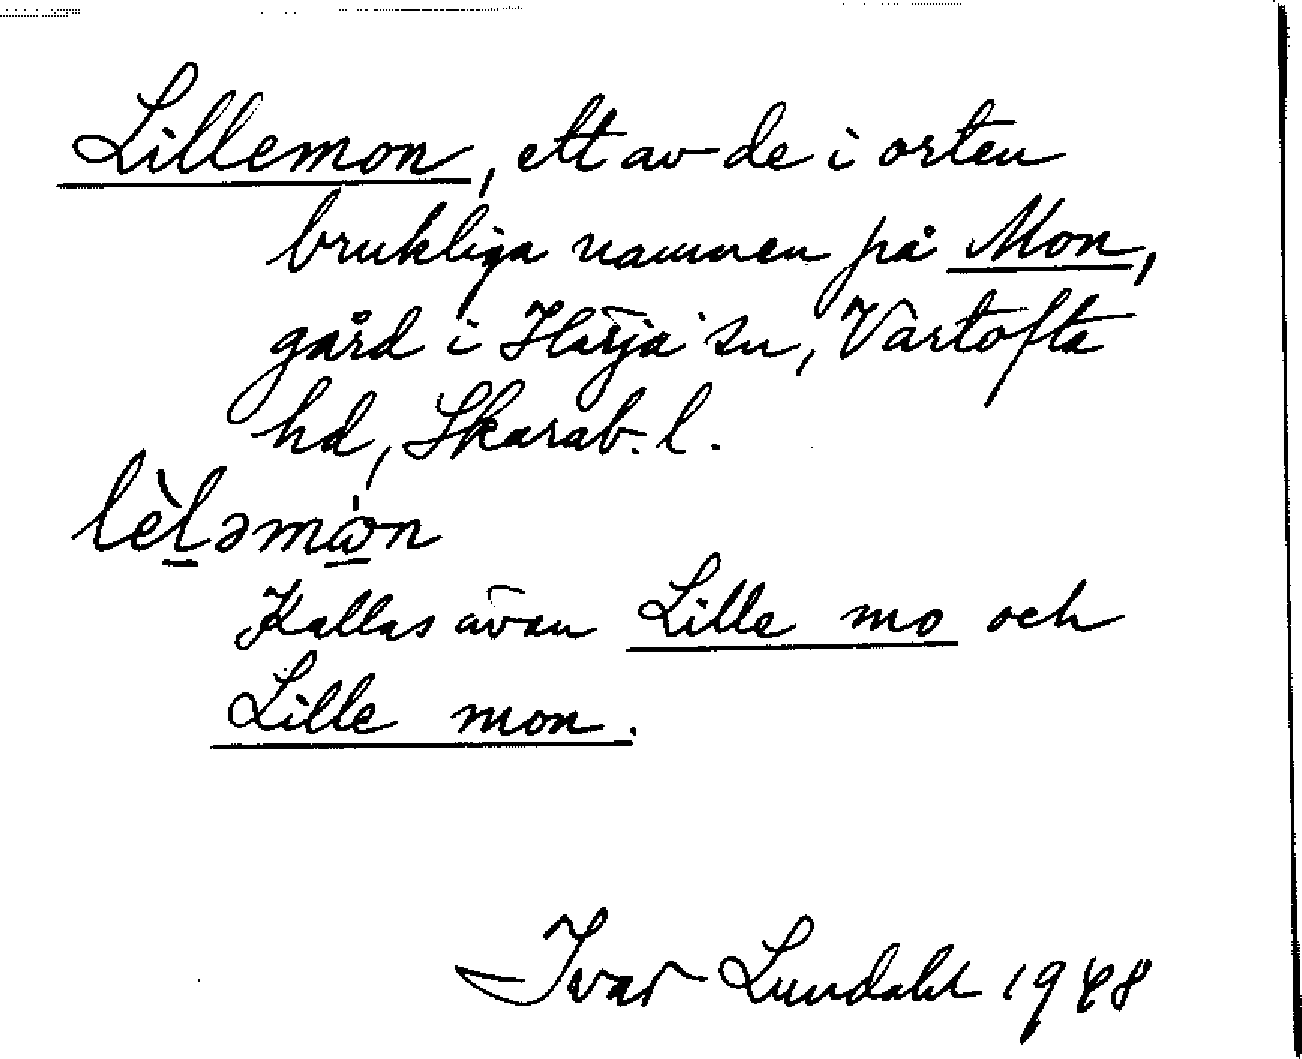 Lillemon, ett av de i orten
brukliga namnen på Mon,
gård i Härja sn, Vartofta
hd, Skarab. l.
lèləmòn
Kallas även Lille mo och
Lille mon.
Ivar Lundahl 1948